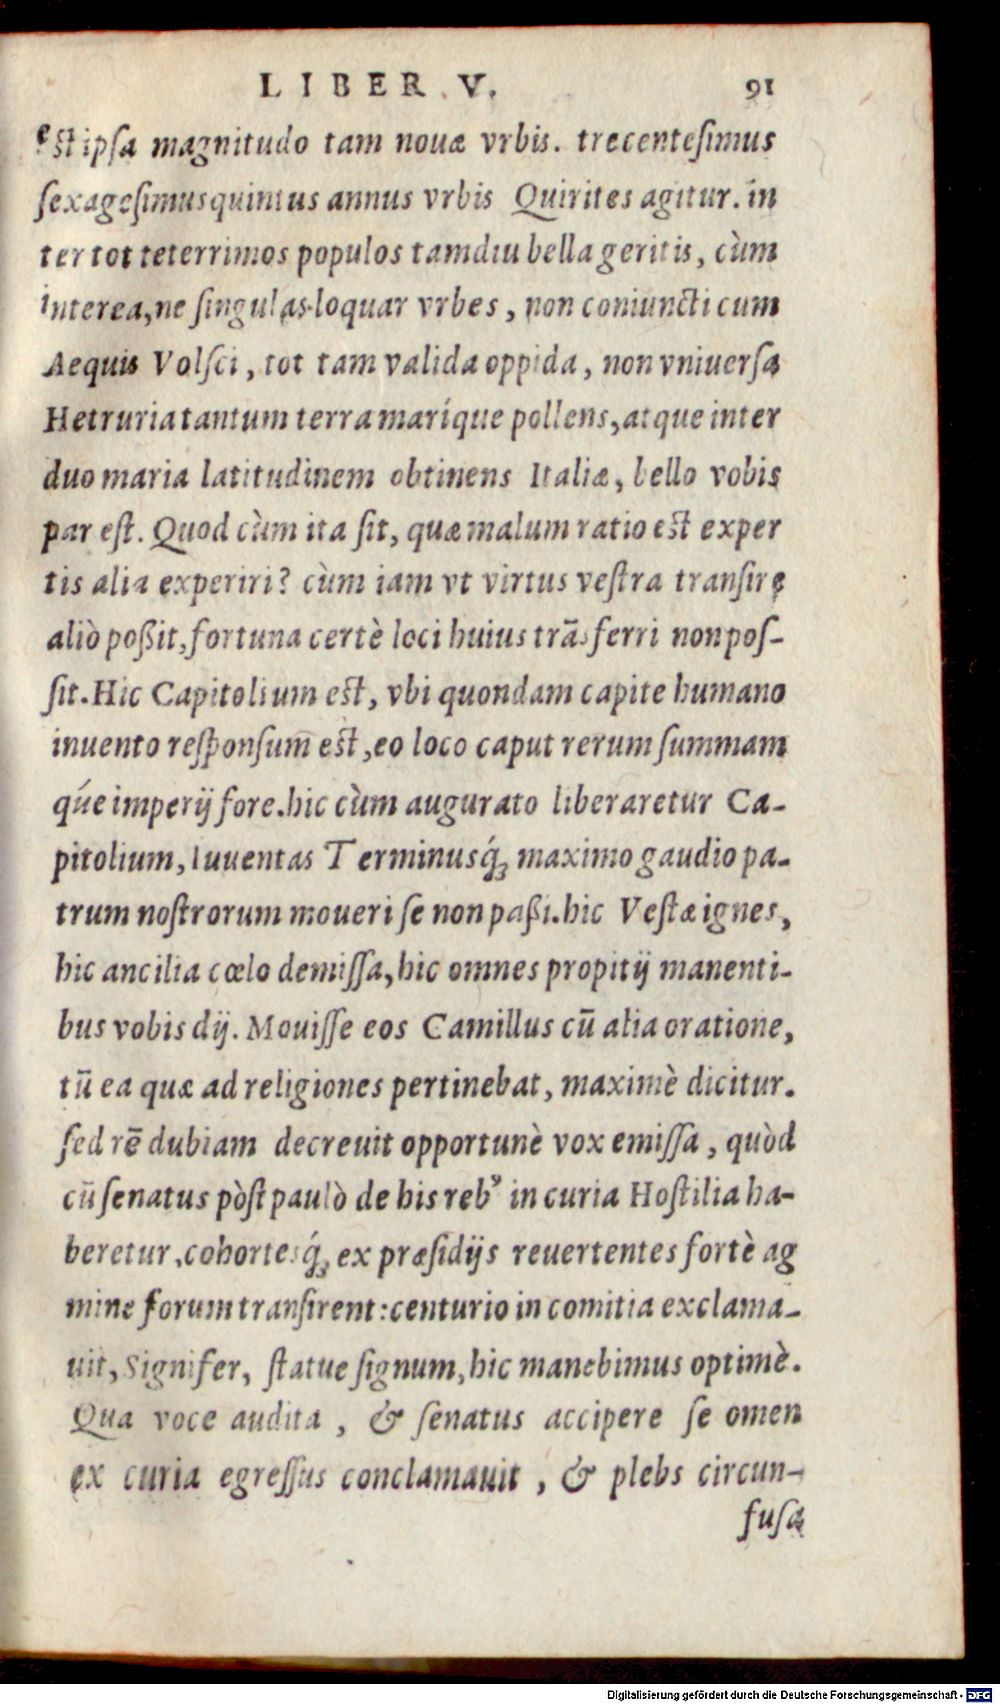 LIBER V. 91
est ipsa magnitudo tam nouæ vrbis. trecentesimus
sexagesimusquintus annus vrbis Quirites agitur. in
ter tot teterrimos populos tamdiu bella geritis, cùm
interea, ne singulas loquar vrbes, non coniuncti cum
Aequis Volsci, tot tam valida oppida, non vniuersa
Hetruria tantum terra maríque pollens, atque inter
duo maria latitudinem obtinens Italiæ, bello vobis
par est. Quod cùm ita sit, quæ malum ratio est exper
tis alia experiri? cùm iam vt virtus vestra transire
aliò poßit, fortuna certè loci huius trãsferri non pos-
sit. Hic Capitolium est, vbi quondam capite humano
inuento responsum est, eo loco caput rerum summam
q́ue imperij fore. hic cùm augurato liberaretur Ca-
pitolium, Iuuentas Terminusq́; maximo gaudio pa-
trum nostrorum moueri se non paßi. hic Vestæ ignes,
hic ancilia cœlo demissa, hic omnes propitij manenti-
bus vobis dij. Mouisse eos Camillus cũ alia oratione,
tũ ea quæ ad religiones pertinebat, maximè dicitur.
sed rẽ dubiam decreuit opportunè vox emissa, quòd
cũ senatus pòst paulò de his rebꝰ in curia Hostilia ha-
beretur, cohortesq́; ex præsidijs reuertentes fortè ag
mine forum transirent: centurio in comitia exclama-
uit, Signifer, statue signum, hic manebimus optimè.
Qua voce audita, & senatus accipere se omen
ex curia egressus conclamauit, & plebs circun-
fusa
Digitalisierung gefördert durch die Deutsche Forschungsgemeinschaft - DFG